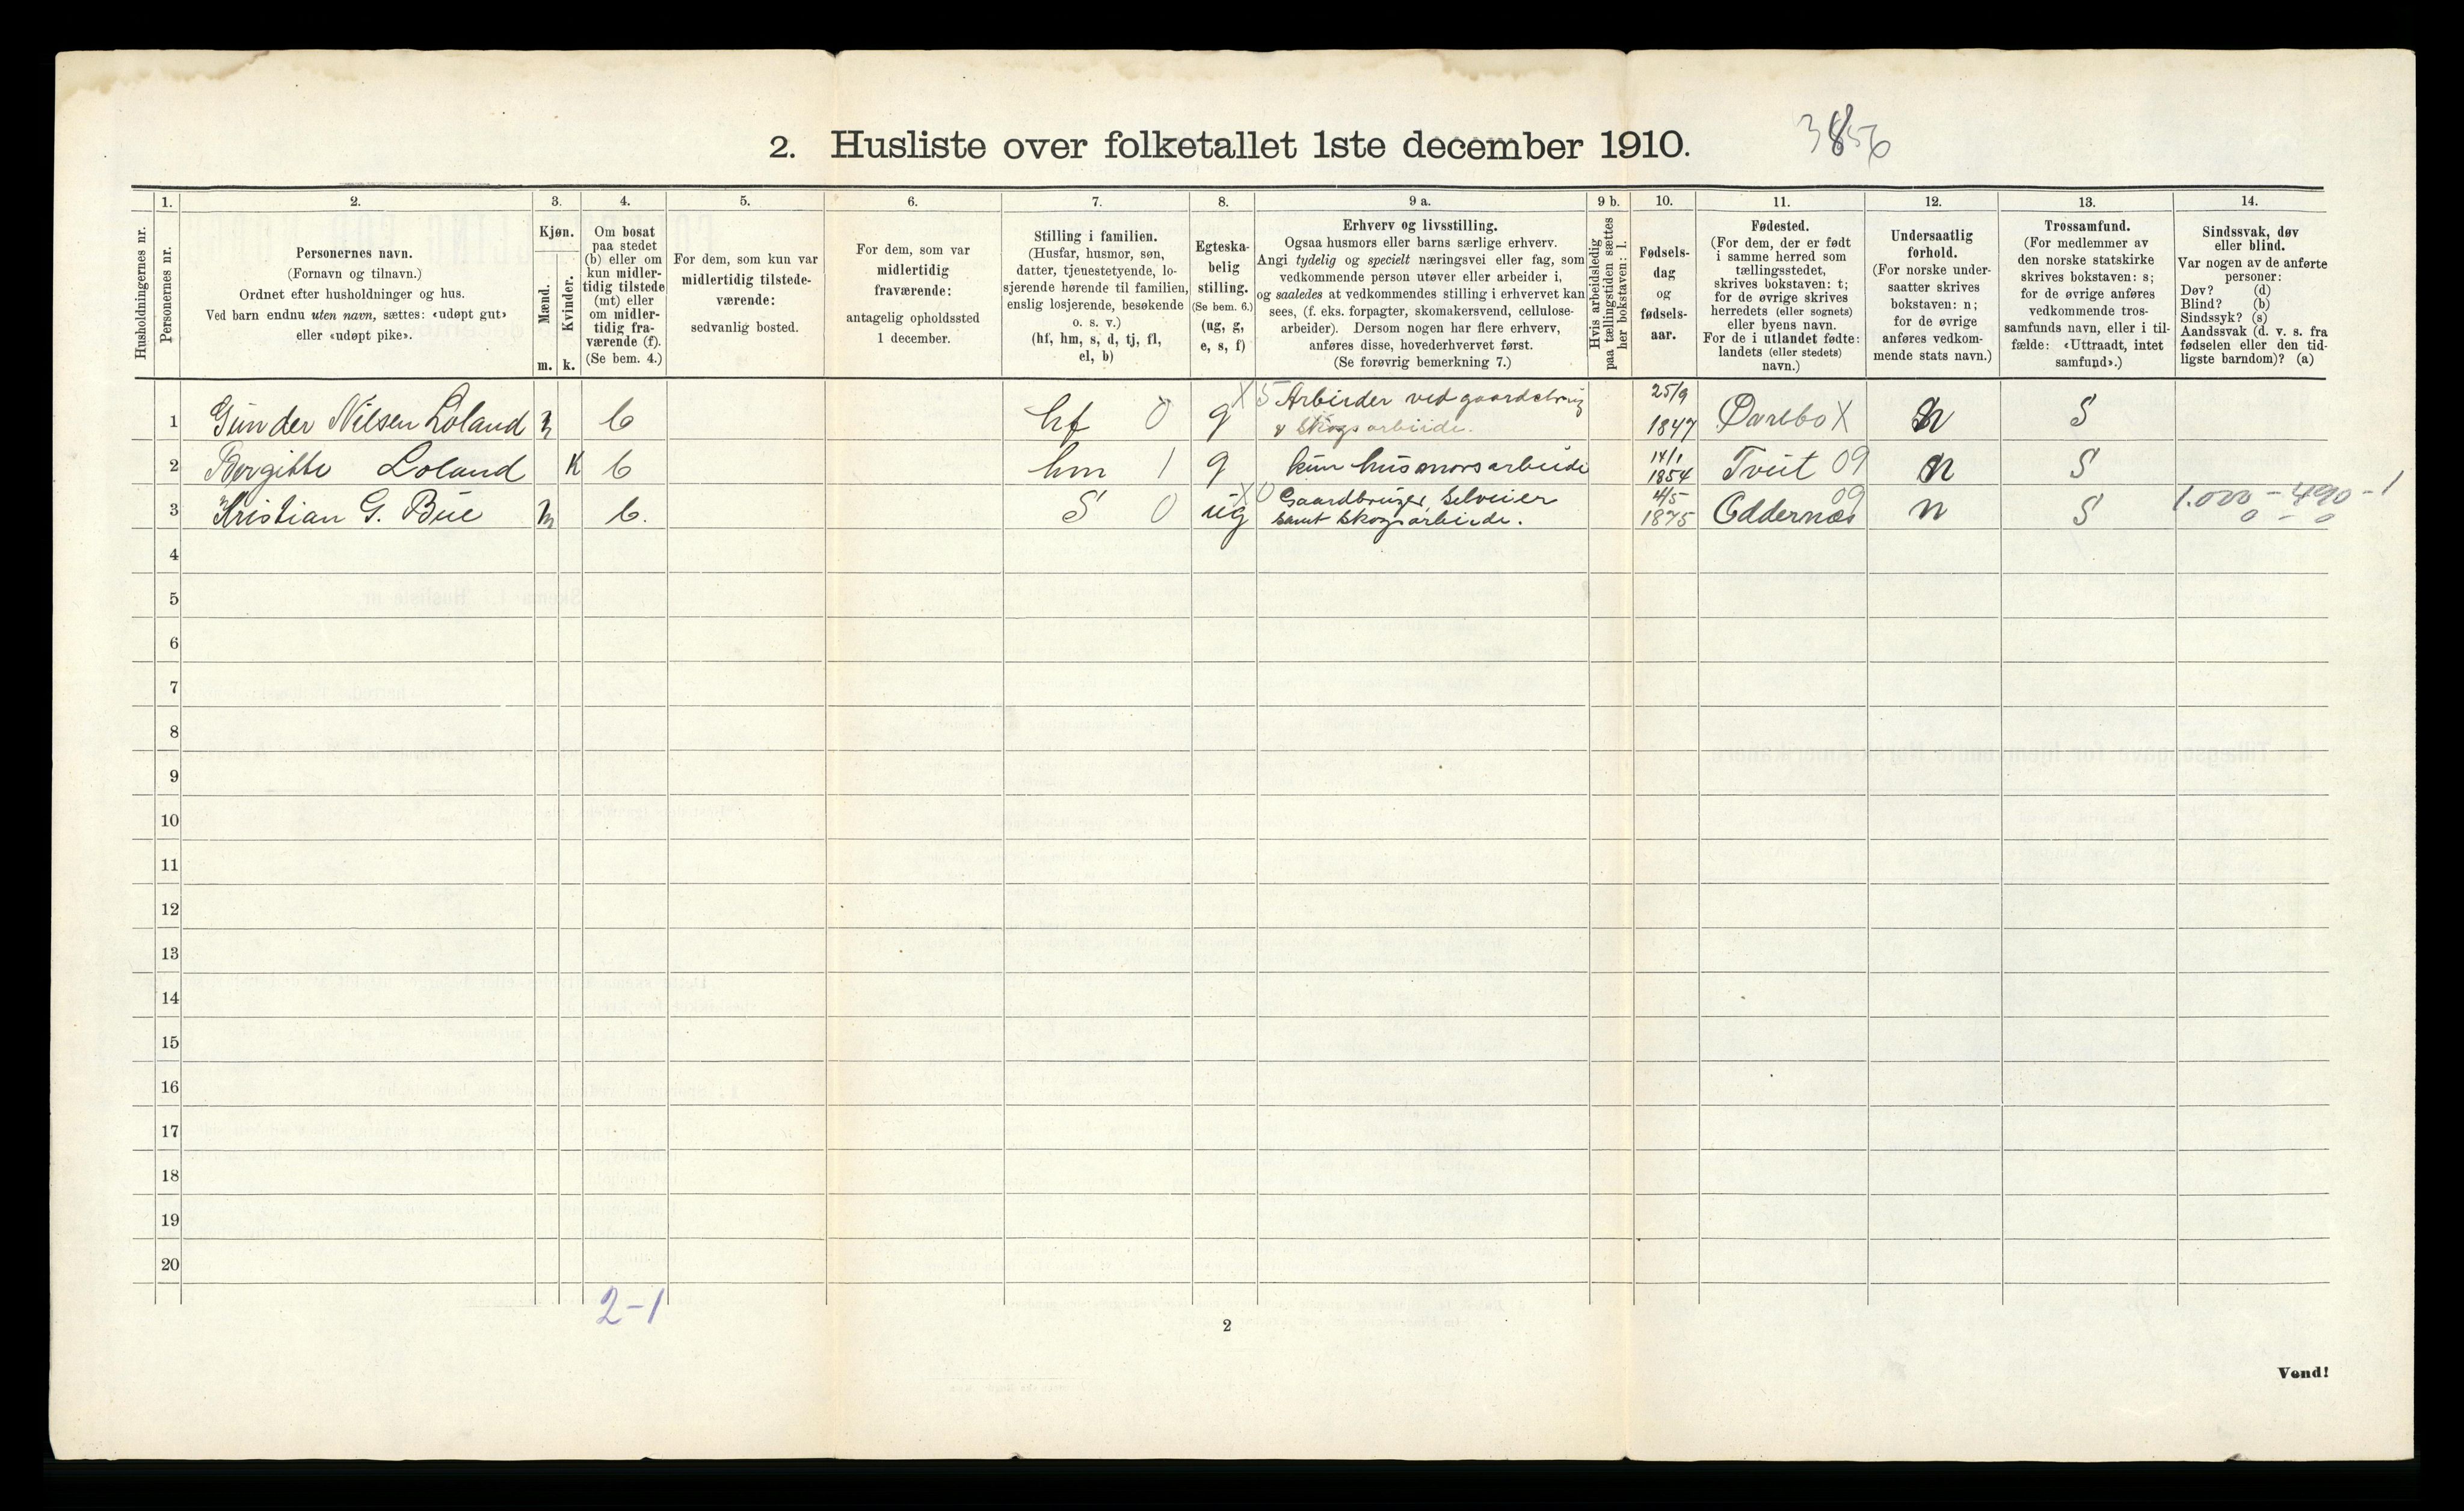 2. Husliste over folketallet 1ste december 1910.
3856
Husholdningernes nr.
1.
Personernes nr.
2.
Personernes navn.
(Fornavn og tilnavn.)
Ordnet efter husholdninger og hus.
Ved barn endnu uten navn, sættes: «udøpt gut»
eller «udøpt pike».
3.
Kjøn.
Mænd.
Kvinder.
m. k.
4.
Om bosat
paa stedet
(b) eller om
kun midler-
tidig tilstede
(mt) eller
om midler-
tidig fra-
værende (f).
(Se bem. 4.)
5.
For dem, som kun var
midlertidig tilstede-
værende:
sedvanlig bosted.
6.
For dem, som var
midlertidig
fraværende:
antagelig opholdssted
1 december.
7.
Stilling i familien.
(Husfar, husmor, søn,
datter, tjenestetyende, lo-
sjerende hørende til familien,
enslig losjerende, besøkende
o. s. v.)
(hf, hm, s, d, tj, fl,
el, b)
8.
Egteska-
belig
stilling.
(Se bem. 6.)
(ug, g,
e, s, f)
9 a.
Erhverv og livsstilling.
Ogsaa husmors eller barns særlige erhverv.
Angi tydelig og specielt næringsvei eller fag, som
vedkommende person utøver eller arbeider i,
og saaledes at vedkommendes stilling i erhvervet kan
sees, (f. eks. forpagter, skomakersvend, cellulose-
arbeider). Dersom nogen har flere erhverv,
anføres disse, hovederhvervet først.
(Se forøvrig bemerkning 7.)
9 b.
Hvis arbeidsledig
paa tællingstiden sættes
her bokstaven: l.
10.
Fødsels-
dag
og
fødsels-
aar.
11.
Fødested.
(For dem, der er født
i samme herred som
tællingsstedet,
skrives bokstaven: t;
for de øvrige skrives
herredets (eller sognets)
eller byens navn.
For de i utlandet fødte:
landets (eller stedets)
navn.)
12.
Undersaatlig
forhold.
(For norske under-
saatter skrives
bokstaven: n;
for de øvrige
anføres vedkom-
mende stats navn.)
13.
Trossamfund.
(For medlemmer av
den norske statskirke
skrives bokstaven: s;
for de øvrige anføres
vedkommende tros-
samfunds navn, eller i til-
fælde: «Uttraadt, intet
samfund».)
14.
Sindssvak, døv
eller blind.
Var nogen av de anførte
personer:
Døv? (d)
Blind? (b)
Sindssyk? (s)
Aandssvak (d. v. s. fra
fødselen eller den tid-
ligste barndom)? (a)
1 Gunder Nilsen Loland m b hf 0 g X 5 Arbeider ved gaardsbrug
& skogsarbeide. 25/9 1847 Øvrebo X n S
2 Bergitte Loland K b hm 1 g kun husmorsarbeide 14/1 1854 Tveit 09 n S
3 Kristian G. Bue m b. S 0 ug X 0 Gaardbruger, Selveier
samt skogsarbeide. 4/5 1875 Oddernæs 09 n S 1.000 - 490 - 1
0 - 0
4
5
6
7
8
9
10
11
12
13
14
15
16
17
18
19
20
2-1
2
Vend!